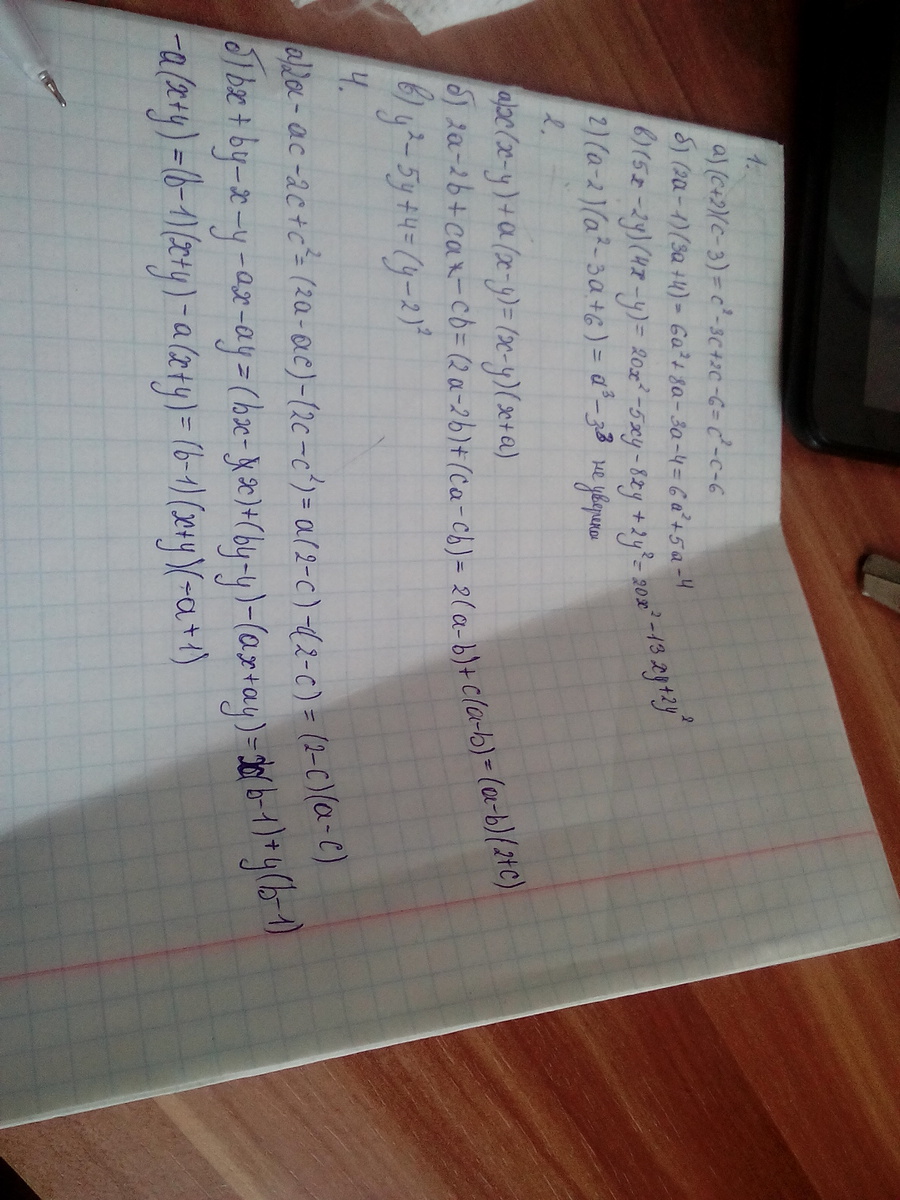 1.
а) (c+2)(c-3) = c²-3c+2c-6 = c²-c-6
б) (2a-1)(3a+4) = 6a²+8a-3a-4 = 6a²+5a-4
в) (5x-2y)(4x-y) = 20x²-5xy-8xy+2y² = 20x²-13xy+2y²
г) (a-2)(a²-3a+6) = a³-3³ не уверена
2.
а) x(x-y)+a(x-y)=(x-y)(x+a)
б) 2a-2b+ca-cb=(2a-2b)+(ca-cb)=2(a-b)+c(a-b)=(a-b)(2+c)
в) y²-5y+4=(y-2)²
4.
а) 2a-ac-2c+c²=(2a-ac)-(2c-c²)=a(2-c)-1(2-c)=(2-c)(a-c)
б) bx+by-x-y-ax-ay=(bx-x)+(by-y)-(ax+ay)=x(b-1)+y(b-1)
-a(x+y)=(b-1)(x+y)-a(x+y)=(b-1)(x+y)(-a+1)